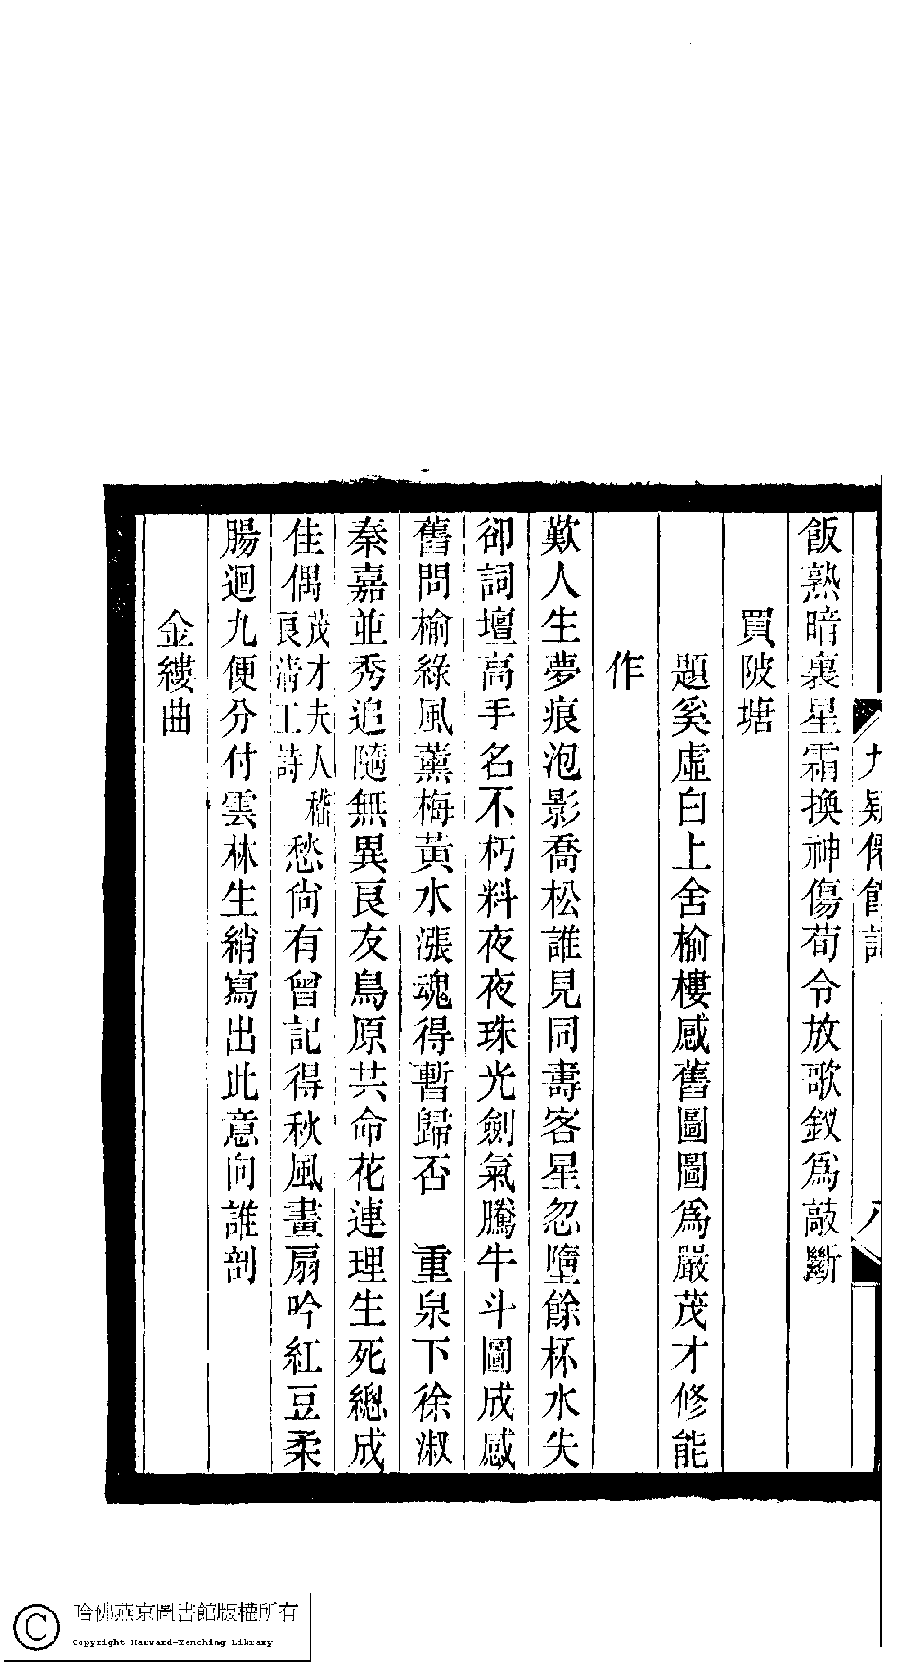 九疑僊館詞
八
飯熟暗裏星霜換神傷荀令放歌釵爲敲斷
買陂塘
題奚虛白上舍榆樓感舊圖圖爲嚴茂才修能
作
歎人生夢痕泡影喬松誰見同壽客星忽墮餘杯水失
卻詞壇高手名不朽料夜夜珠光劍氣騰牛斗圖成感
舊問榆綠風薰梅黃水漲魂得暫歸否　重泉下徐淑
秦嘉並秀追隨無異良友鳥原共命花連理生死總成
佳偶茂才夫人良清工詩愁尙有曾記得秋風畫扇吟紅豆柔
腸迴九便分付雲林生綃寫出此意向誰剖
金縷曲
哈佛燕京圖書館版權所有
Copyright Harvard-Yenching Library